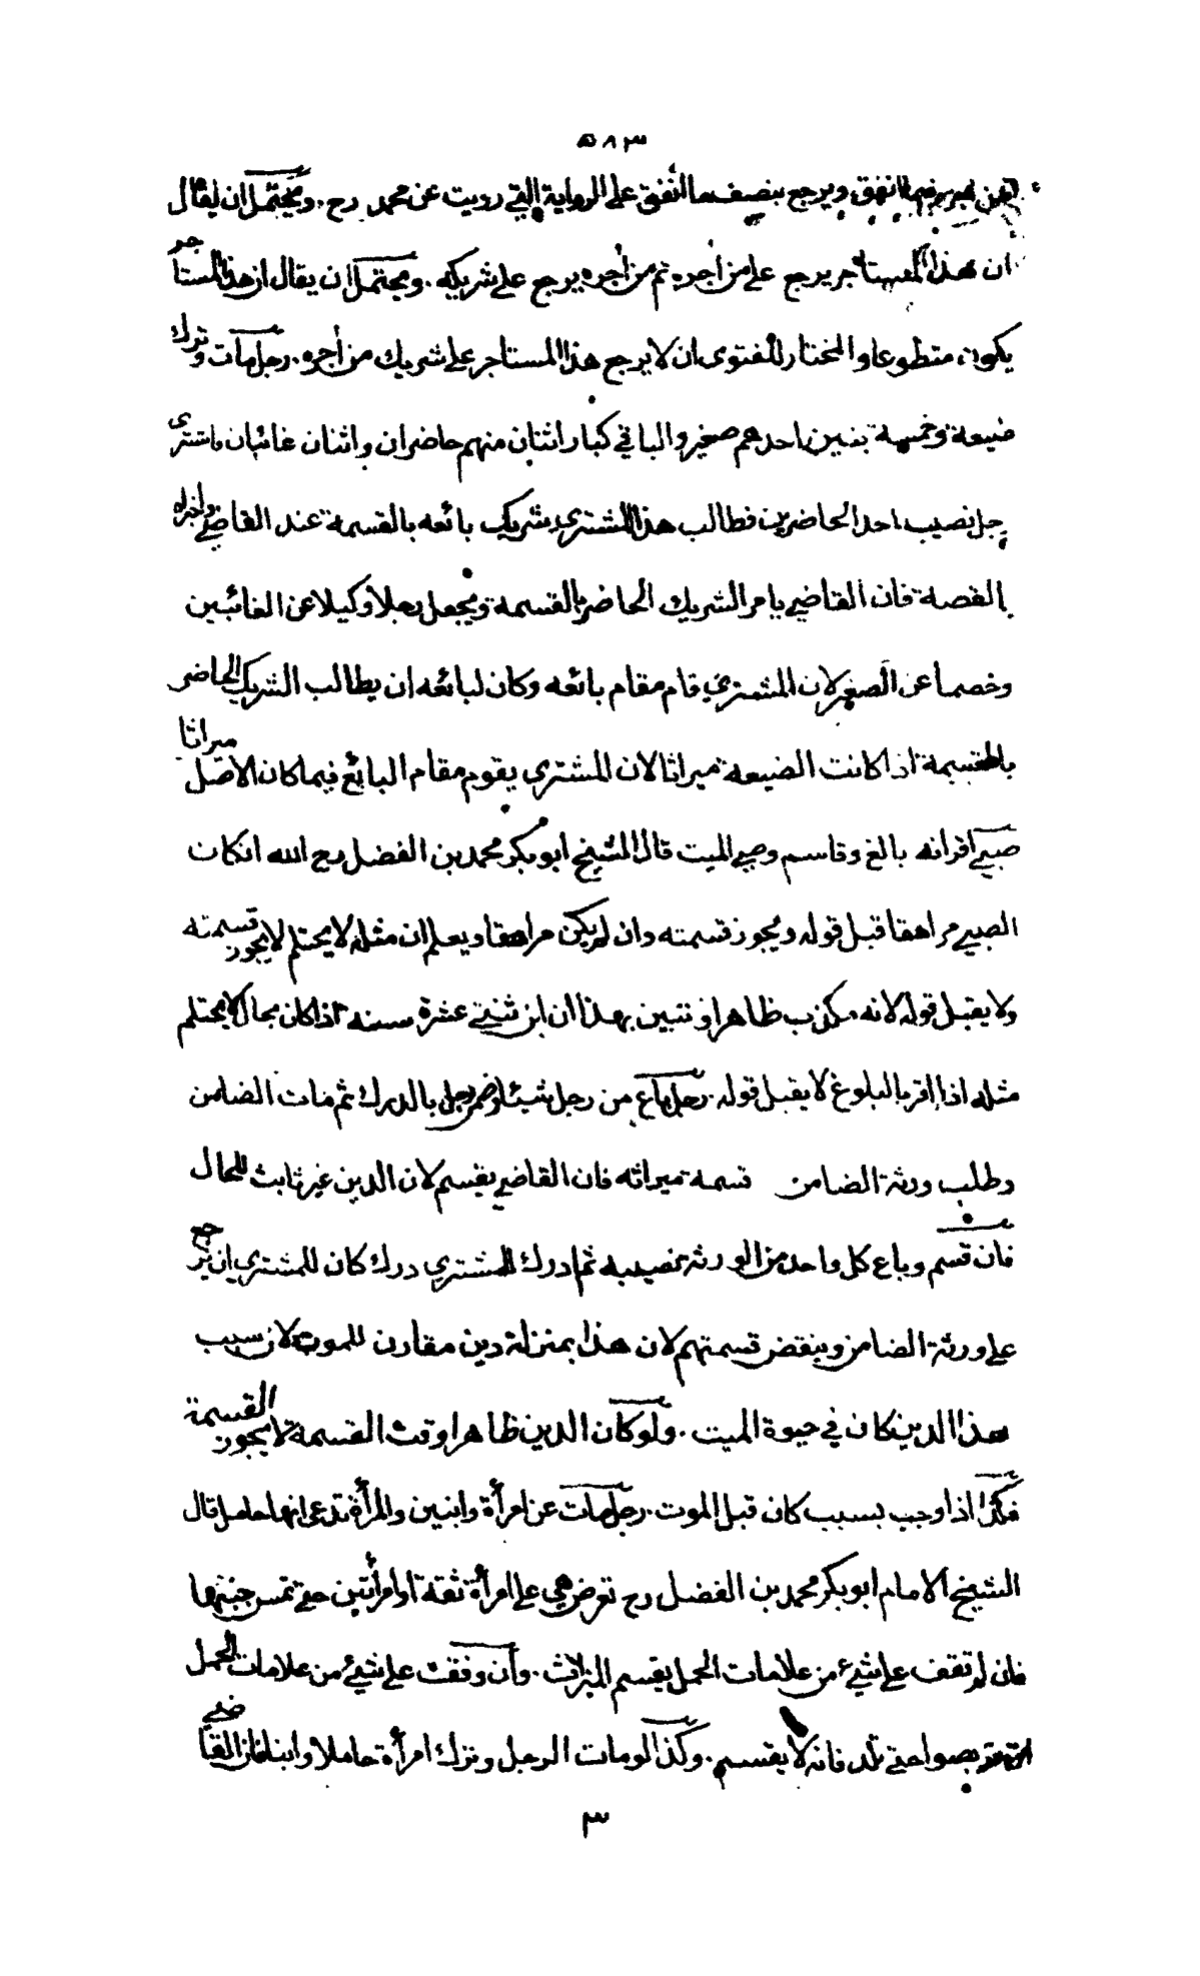 ٥٨٣
انفق ويرجع بنصف ما انفق على الرواية التي رويت عن محمد رح . ويحتمل ان يقال
ان هذا المستاجر يرجع على من أجره ثم من أجره يرجع على شريكه . ويحتمل ان يقال ان هذا المستاجر
يكون متطوعا والمختار للفتوى ان لا يرجع هذا المستاجر على شريك من أجره . رجل مات وترك
ضيعة وخمسة بنين احدهم صغير والباقي كبار اثنان منهم حاضران واثنان غائبان فاشترى
رجل نصيب احد الحاضرين فطالب هذا المشتري شريك بائعه بالقسمة عند القاضي واخبراه
بالقصة فان القاضي يامر الشريك الحاضر بالقسمة ويجعل رجلا وكيلا عن الغائبين
وخصما عن الصغير لان المشتري قام مقام بائعه وكان لبائعه ان يطالب الشريك الحاضر
بالقسمة اذا كانت الضيعة ميراثا لان المشتري يقوم مقام البائع فيما كان الاصل ميراثا
صبي اقر انه بالغ وقاسم وصي الميت قال الشيخ ابو بكر محمد بن الفضل رح الله ان كان
الصبي مراهقا قبل قوله ويجوز قسمته وان لم يكن مراهقا ويعلم ان مثله لا يحتلم لا يجوز قسمته
ولا يقبل قوله لانه مكذب ظاهرا وتبين بهذا ان ابن ثنتي عشرة سنة اذا كان بحال لا يحتلم
مثله اذا اقر بالبلوغ لا يقبل قوله . رجل باع من رجل شيئا وضمن رجل بالدرك ثم مات الضامن
وطلب ورثة الضامن قسمة ميراثه فان القاضي يقسم لان الدين غير ثابت للحال
فان قسم وباع كل واحد من الورثة نصيبه ثم ادرك المشتري درك كان للمشتري ان يرجع
على ورثة الضامن وينقض قسمتهم لان هذا بمنزلة دين مقارن للموت لان سبب
هذا الدين كان في حيوة الميت . ولو كان الدين ظاهرا وقت القسمة لا يجوز القسمة
فكذا اذا وجب بسبب كان قبل الموت . رجل مات عن امرأة وابنين والمرأة تدعى انها حامل قال
الشيخ الامام ابو بكر محمد بن الفضل رح تعرض هي على امرأة ثقة او امرأتين حتى تمس جنبها
فان لم تقف على شيء من علامات الحمل يقسم الميراث . وان وقفت على شيئ من علامات الحمل
تربصوا حتى تلد فانه لا يقسم . وكذا لو مات الرجل وترك امرأة حاملا وابنا فان القاضي
٣